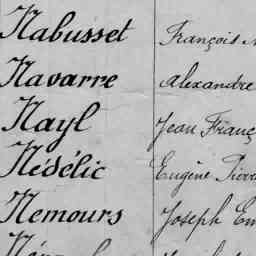 Nabusset François
Navarre Alexandre
Nayl Jean Franç
Nédélic Eugène Pierre
Nemours Joseph Em